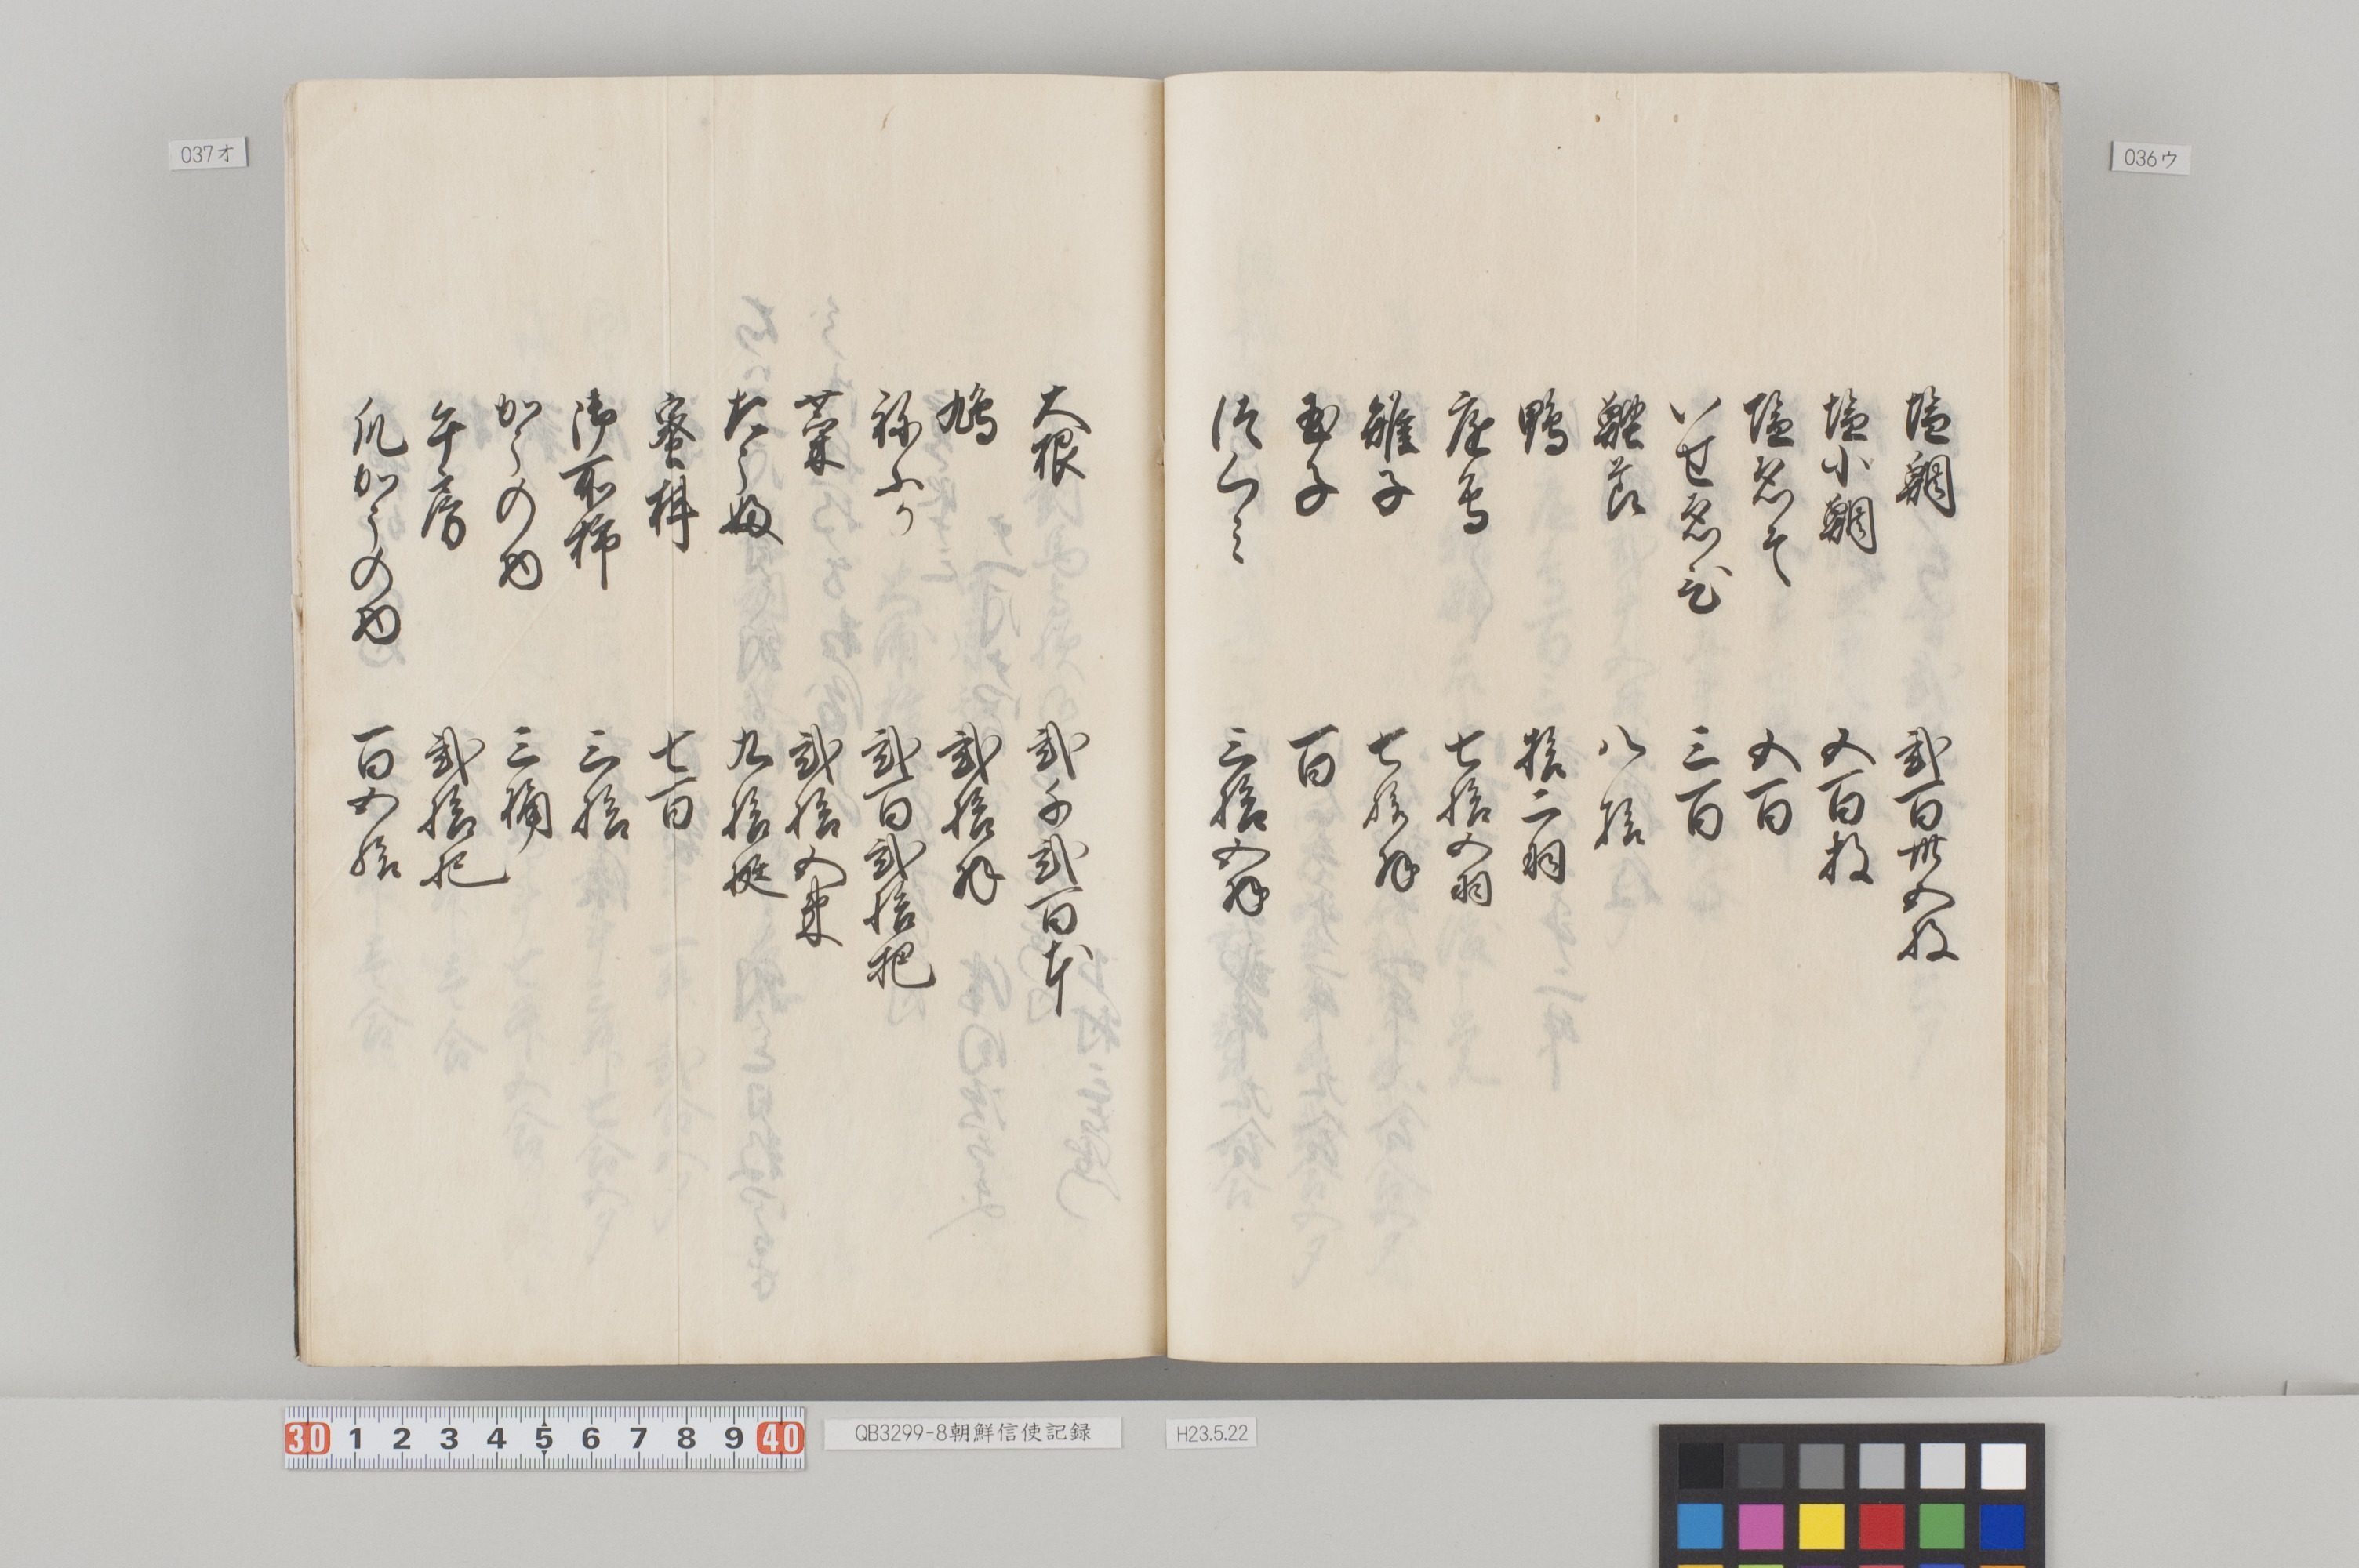 塩鯛 弐百卅五枚
塩小鯛 五百枚
塩あそ 五百
いせゑひ 三百
鰹節 八拾
鴨 拾二羽
庭鳥 七拾五羽
雉子 七拾羽
玉子 百
つくミ 三拾五羽
大根 弐千弐百本
鳩 弐拾羽
祢ふか 弐百弐拾把
菜 弐拾五束
たうふ 九拾挺
蜜柑 七百
御所柿 三拾
かうの物 三桶
午房 弐拾把
瓜かうの物 百五拾
036ウ
037オ
30 1 2 3 4 5 6 7 8 9 40
QB3299-8朝鮮信使記録
H23.5.22